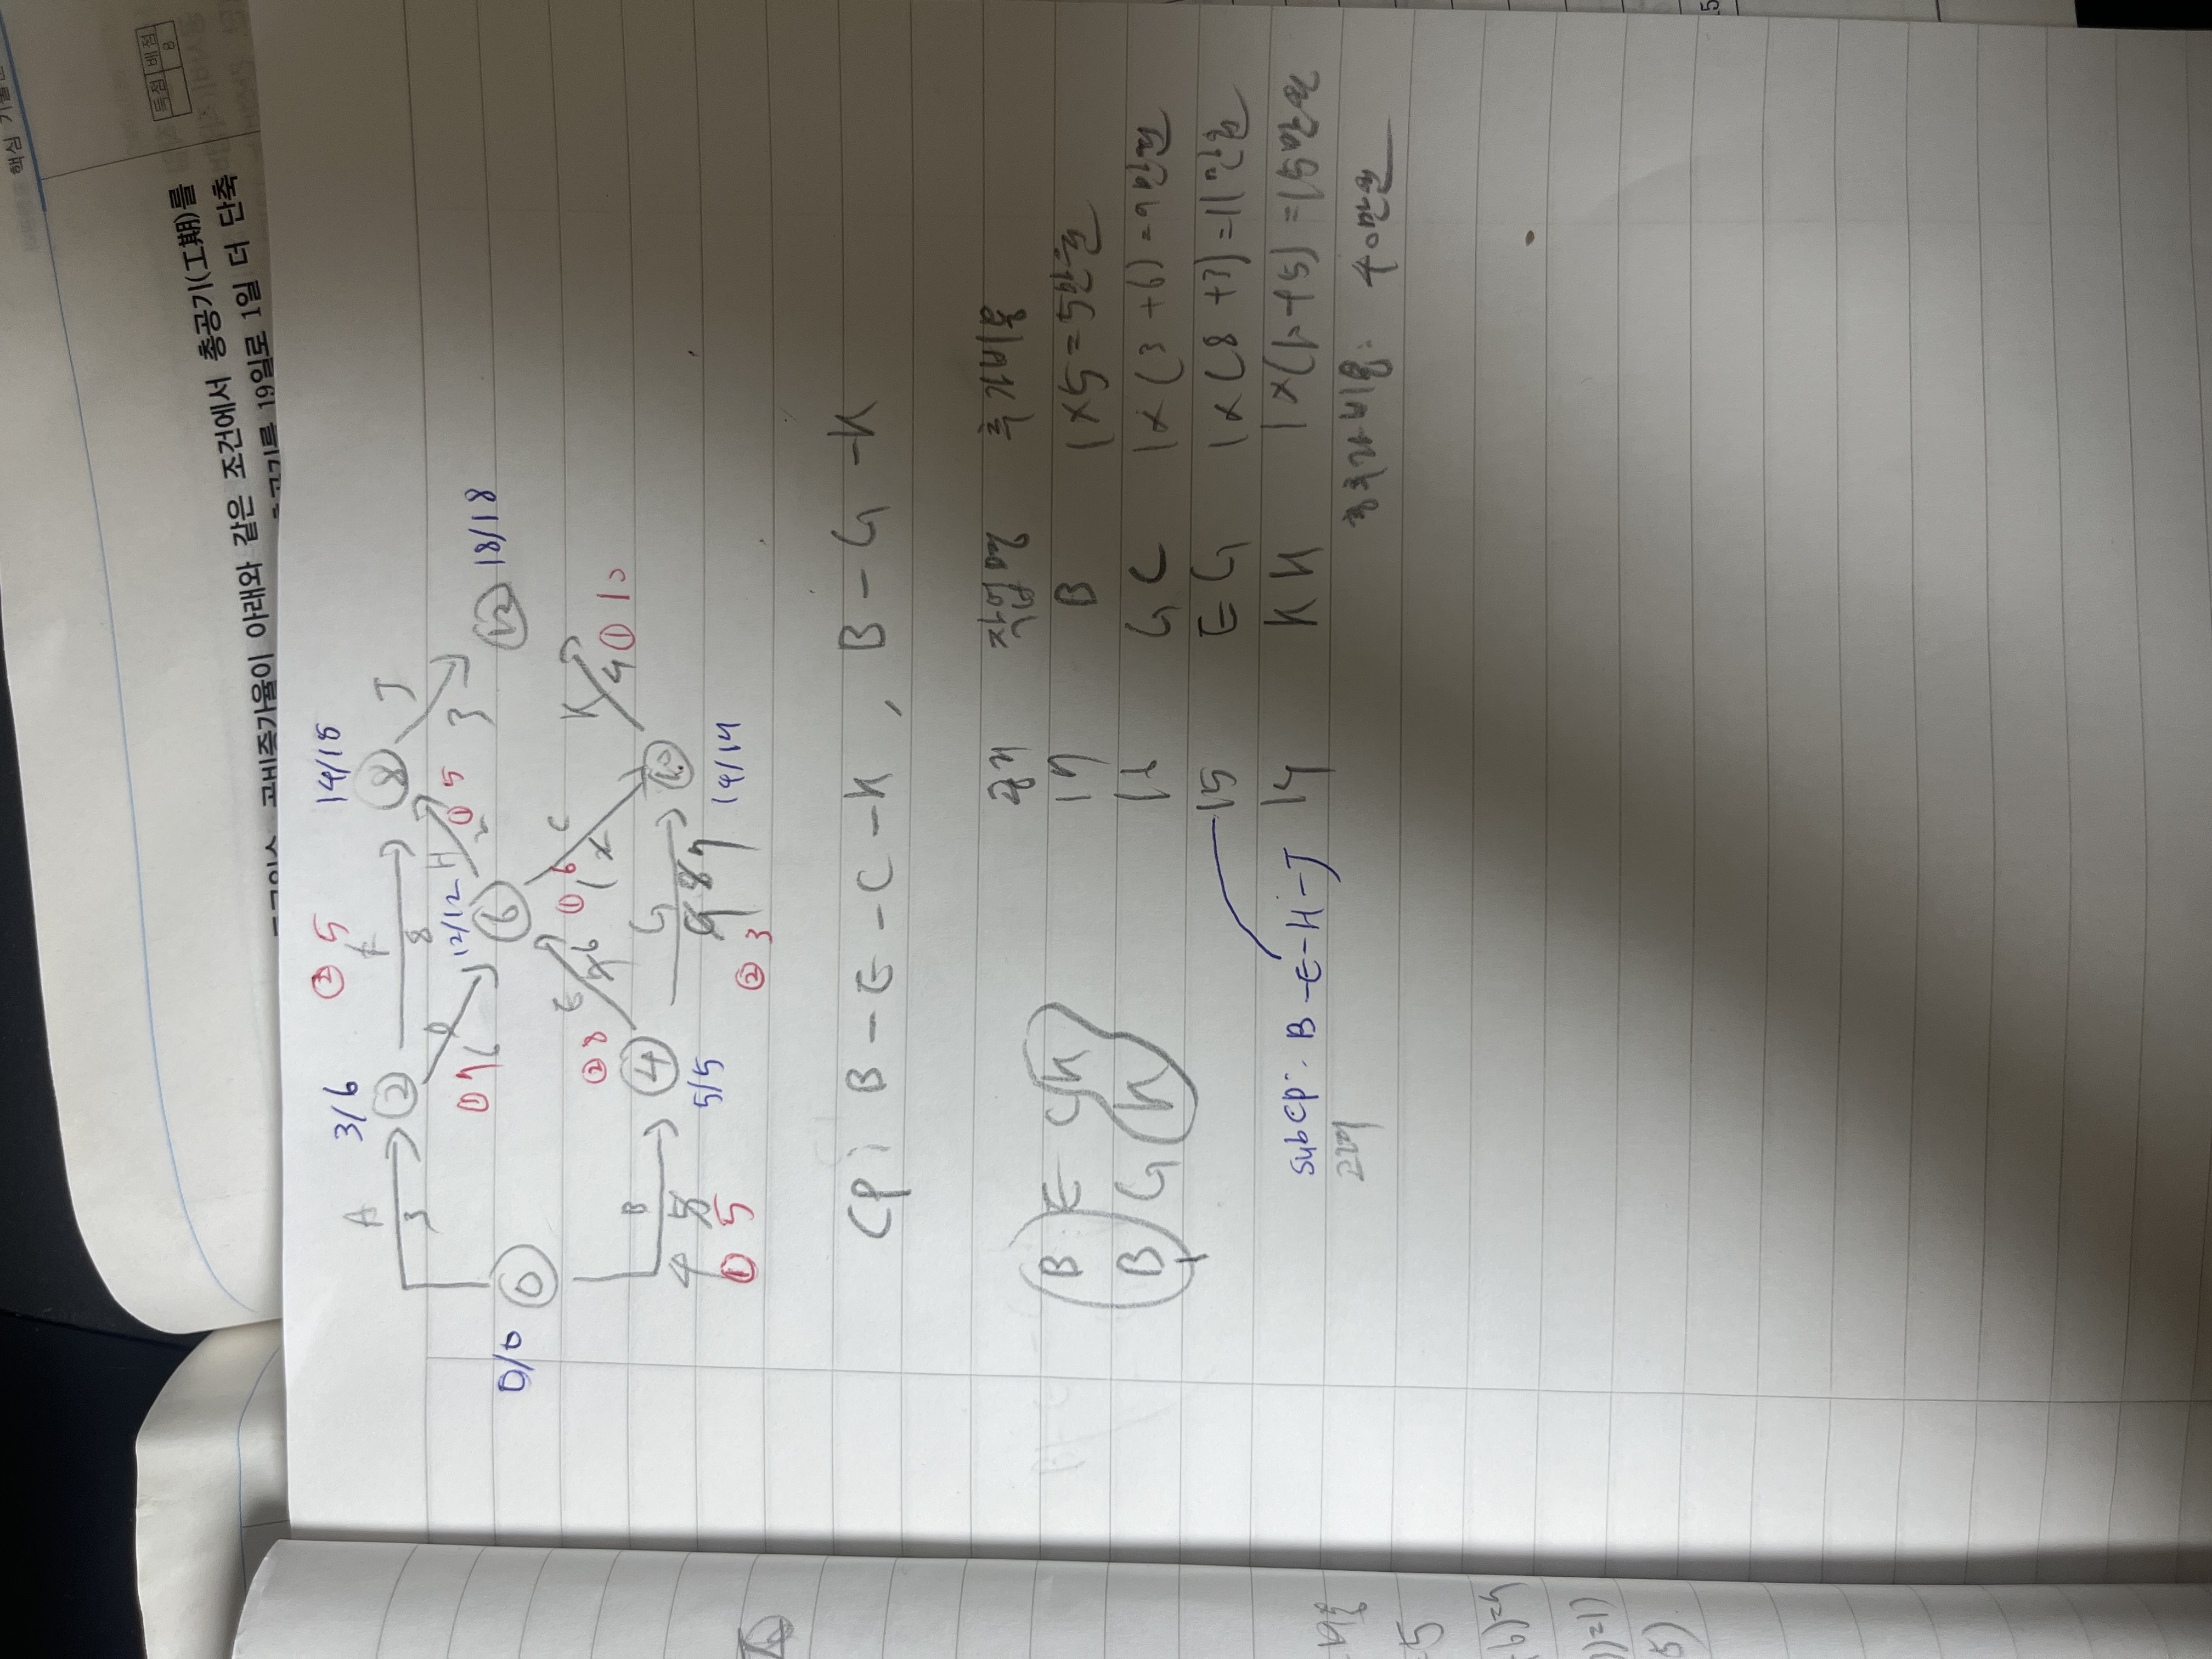 핵심
득점 배점
8
같은 조건에서 총공기(工期)를
공비증가율이 아래와
공기를 19일로 1일 더 단축
3/6
② 5
14/18
A
②
8
⑧
J
3
① 7
12/12
H
① 5
3
0/0
⓪
⑥
⑫ 18/18
E
① 6
C
K
② 8
6
B
④
G
4 ① 10
4 5
9 8 7
⑩
① 5
5/5
② 3
14/14
CP: B-E-C-K, B-G-K
공기 작업명 추가비용
17 B 1×5=5만원
B E C K
G C 1×(3+6)=9만원
B G K
15 E G 1×(8+3)=11만원
subCP: B-E-H-J
14 K H 1×(10+5)=15만원
고려
총추가비용: 40만원